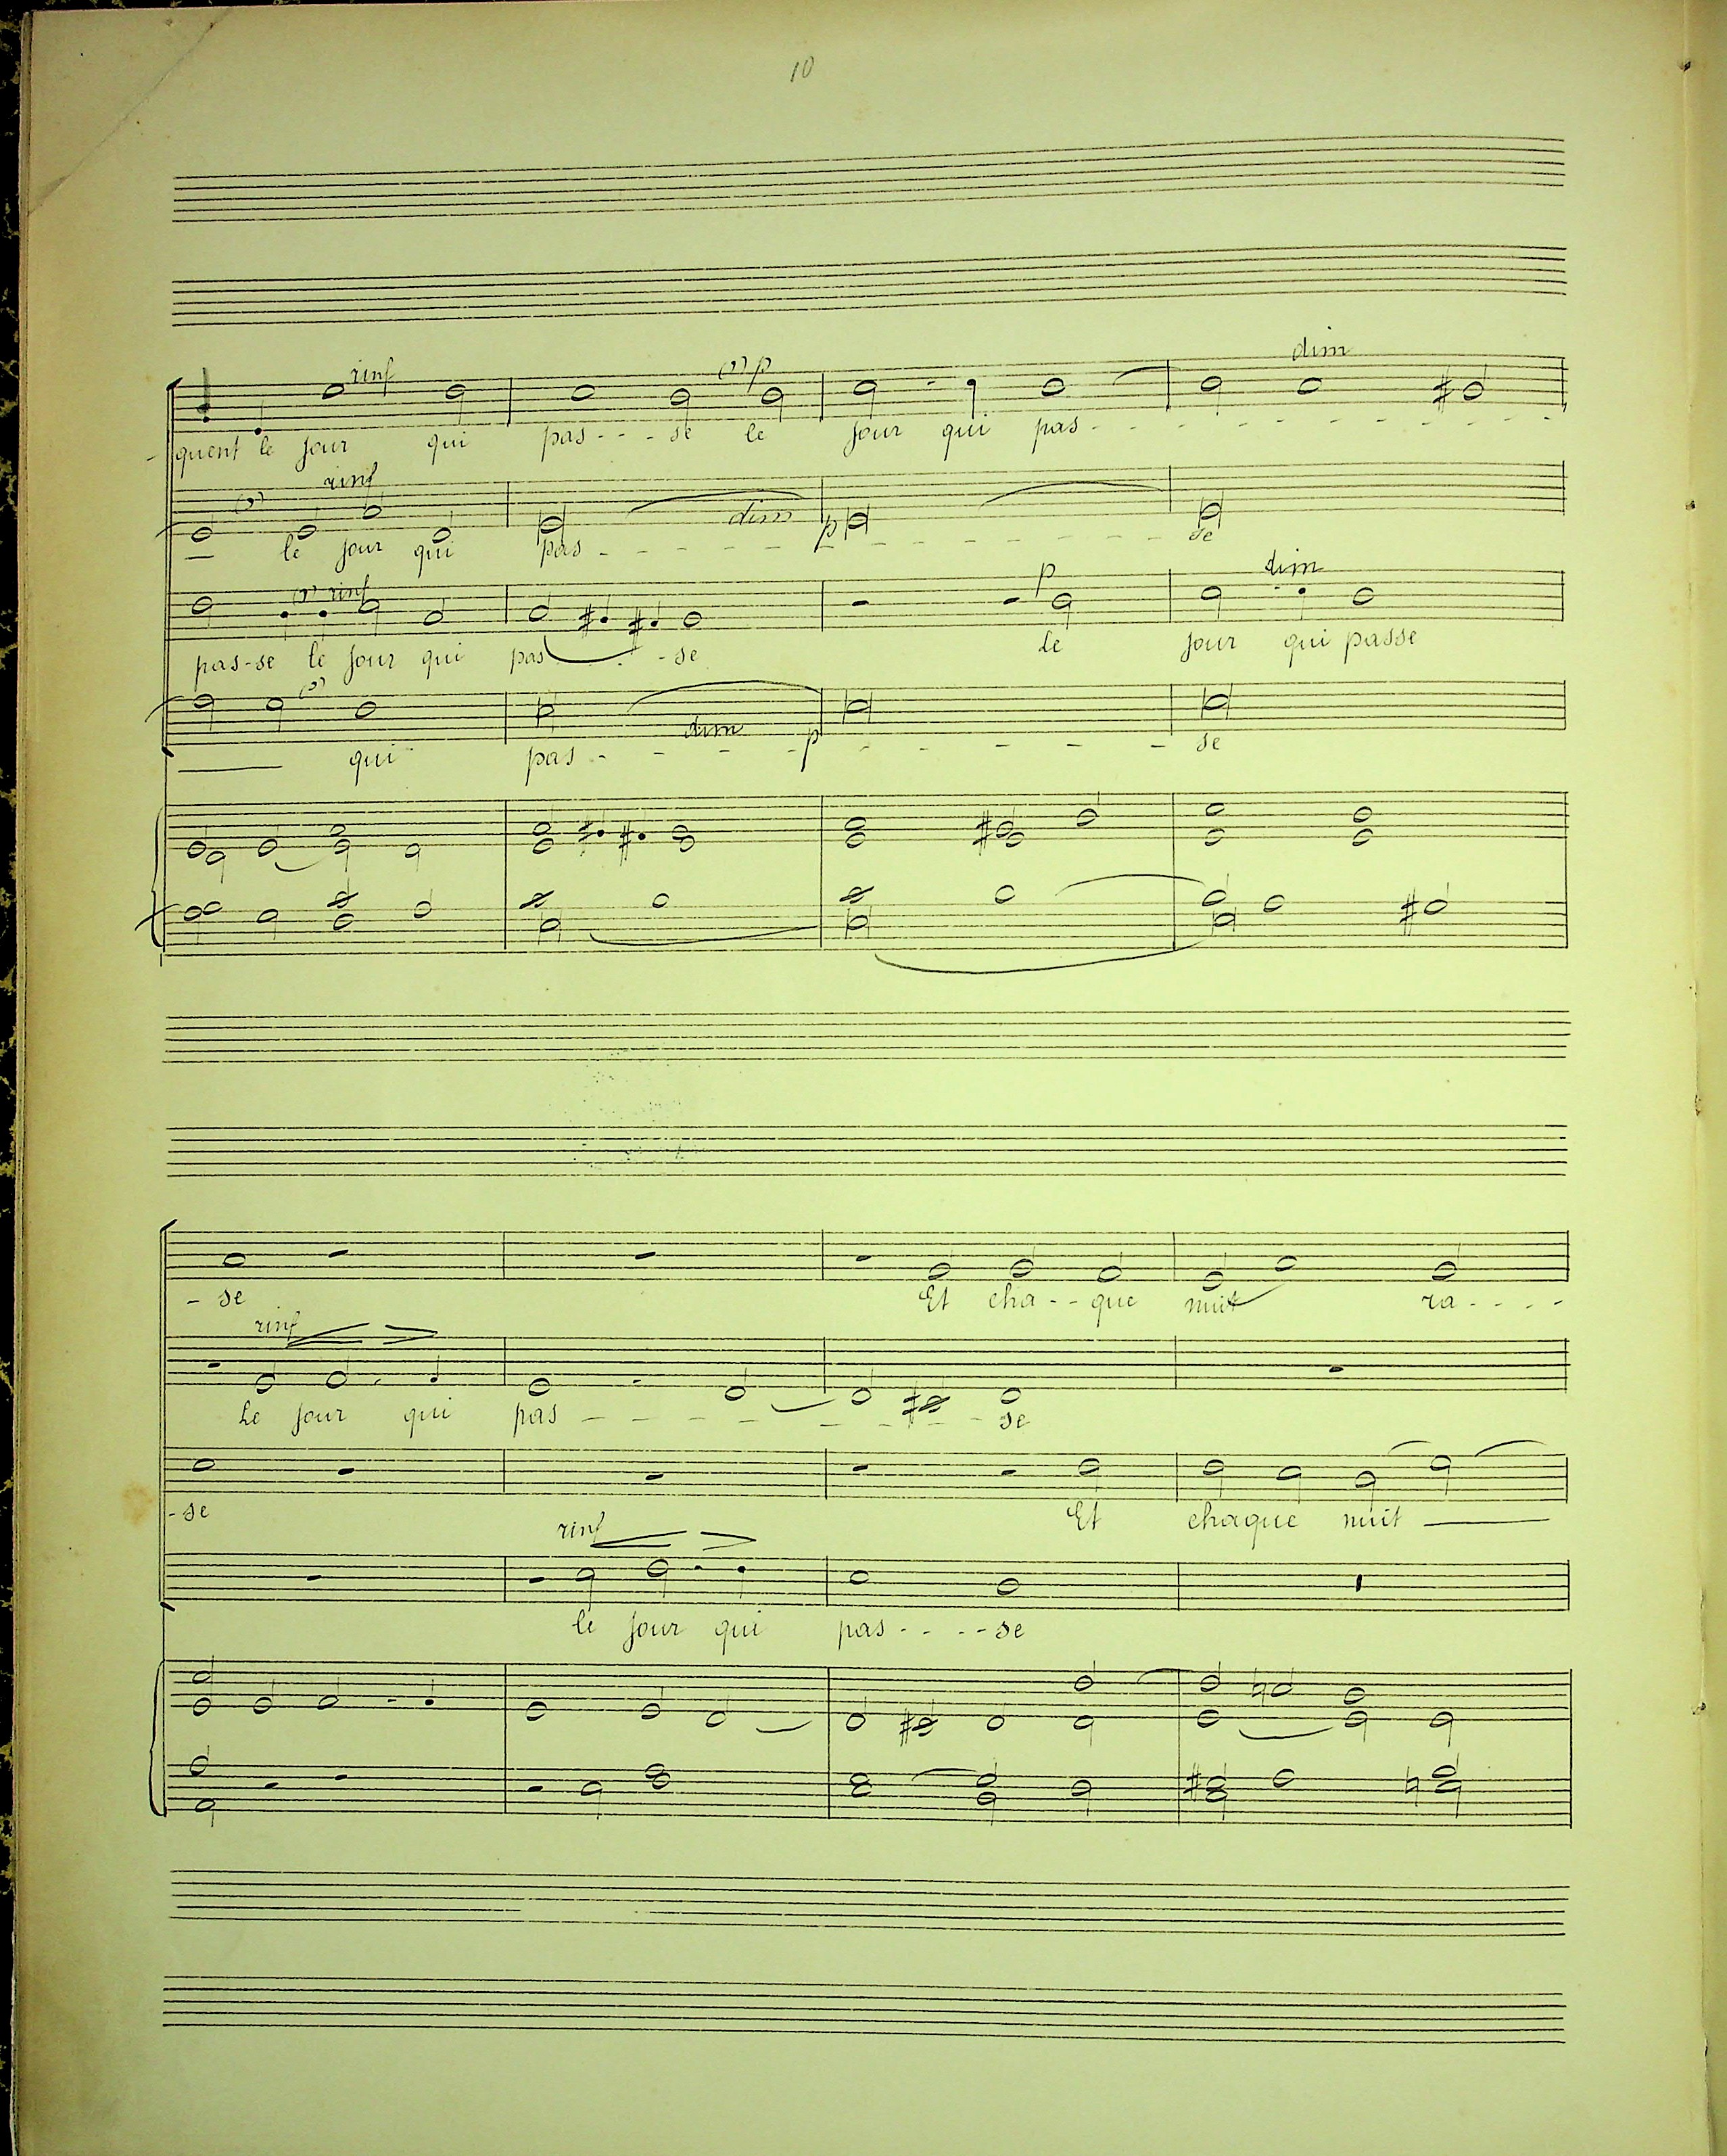 10
rinf (,) p dim
- quent le jour qui pas - - - se le jour qui pas - - - - - - - - - - -
(,) rinf dim p
— le jour qui pas - - - - - - - - - - - se
(,) rinf p dim
pas-se le jour qui pas . . - se le jour qui passe
(,) dim p
— qui pas - - - - - - - - se
- se Et cha - - que nuit ra - - - -
rinf
le jour qui pas - - - - - - - - se
- se Et chaque nuit —
rinf
le jour qui pas - - - - se